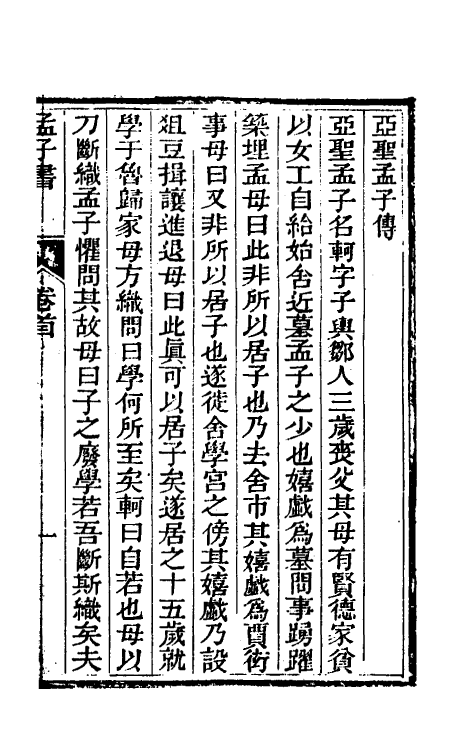 亞聖孟子傳
亞聖孟子名軻字子輿鄒人三歲喪父其母有賢德家貧
以女工自給始舍近墓孟子之少也嬉戲爲墓間事踴躍
築埋孟母曰此非所以居子也乃去舍市其嬉戲爲賈衒
事母曰又非所以居子也遂徙舍學宮之傍其嬉戲乃設
俎豆揖讓進退母曰此眞可以居子矣遂居之十五歲就
學于魯歸家母方織問曰學何所至矣軻曰自若也母以
刀斷織孟子懼問其故母曰子之廢學若吾斷斯織矣夫
孟子書 卷首 一